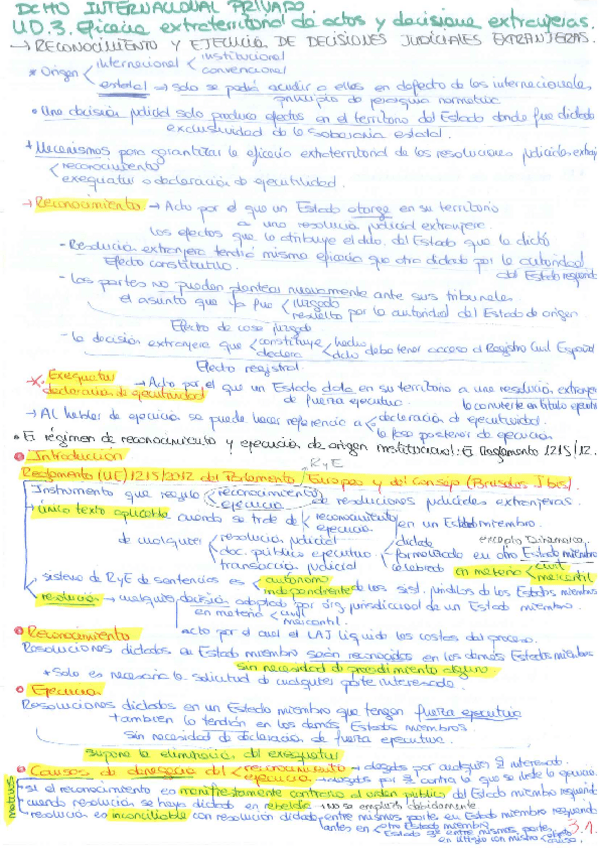 DCHO INTERNACIONAL PRIVADO.
UD.3. Eficacia extraterritorial de actos y decisiones extranjeras.
→ RECONOCIMIENTO Y EJECUCIÓN DE DECISIONES JUDICIALES EXTRANJERAS.
* Origen < internacional < institucional
convencional
estatal → solo se podrá acudir a ellas en defecto de las internacionales,
principio de jerarquía normativa
• Una decisión judicial solo produce efectos en el territorio del Estado donde fue dictada
exclusividad de la soberanía estatal.
* Mecanismos para garantizar la eficacia extraterritorial de las resoluciones judiciales extranj
reconocimiento
exequatur o declaración de ejecutividad.
→ Reconocimiento → Acto por el que un Estado otorga en su territorio
a una resolución judicial extranjera
los efectos que le atribuye el dcho. del Estado que la dictó
- Resolución extranjera tendrá misma eficacia que otra dictada por la autoridad
Efecto constitutivo. del Estado requerido
- Las partes no pueden plantear nuevamente ante sus tribunales
el asunto que ya fue < juzgado
resuelto por la autoridad del Estado de origen
Efecto de cosa juzgada
- la decisión extranjera que < constituye < hecho
declara dcho debe tener acceso al Registro Civil Español
Efecto registral.
Exequatur
declaración de ejecutividad → Acto por el que un Estado dota en su territorio a una resolución extranjera
de fuerza ejecutiva. la convierte en título ejecuti
→ Al hablar de ejecución se puede hacer referencia a < declaración de ejecutividad.
la fase posterior de ejecución
• El régimen de reconocimiento y ejecución de origen institucional: El Reglamento 1215/12.
Introducción
RyE
Reglamento (UE) 1215/2012 del Parlamento Europeo y del Consejo (Bruselas I bis).
Instrumento que regula < reconocimiento
ejecución de resoluciones judiciales extranjeras.
- único texto aplicable cuando se trate de < reconocimiento
ejecución en un Estado miembro.
de cualquier < resolución judicial dictada excepto Dinamarca
doc. público ejecutivo formalizado en otro Estado miembro
transacción judicial celebrada en materia < civil
mercantil
- sistema de RyE de sentencias es < autónomo
independiente de los sist. jurídicos de los Estados miembros
- resolución → cualquier decisión adoptada por órg. jurisdiccional de un Estado miembro
en materia < civil
mercantil.
acto por el cual el LAJ liquida las costas del proceso.
Reconocimiento
Resoluciones dictadas en Estado miembro serán reconocidas en los demás Estados miembros
sin necesidad de procedimiento alguno
* Solo es necesaria la solicitud de cualquier parte interesada.
Ejecución
Resoluciones dictadas en un Estado miembro que tengan fuerza ejecutiva
también la tendrán en los demás Estados miembros.
sin necesidad de declaración de fuerza ejecutiva.
supone la eliminación del exequatur
Causas de denegación del < reconocimiento → alegadas por cualquier interesado.
ejecución → alegadas por contra la que se insta la ejecución.
motivos
- si el reconocimiento es manifiestamente contrario al orden público del Estado miembro requerido
- cuando resolución se haya dictado en rebeldía → no se emplazó debidamente
- resolución es inconciliable con resolución dictada entre mismas partes en Estado miembro requerido
antes en < otro Estado miembro
Estado 3º entre mismas partes
en litigio con mismo < objeto
causa.
3.1.